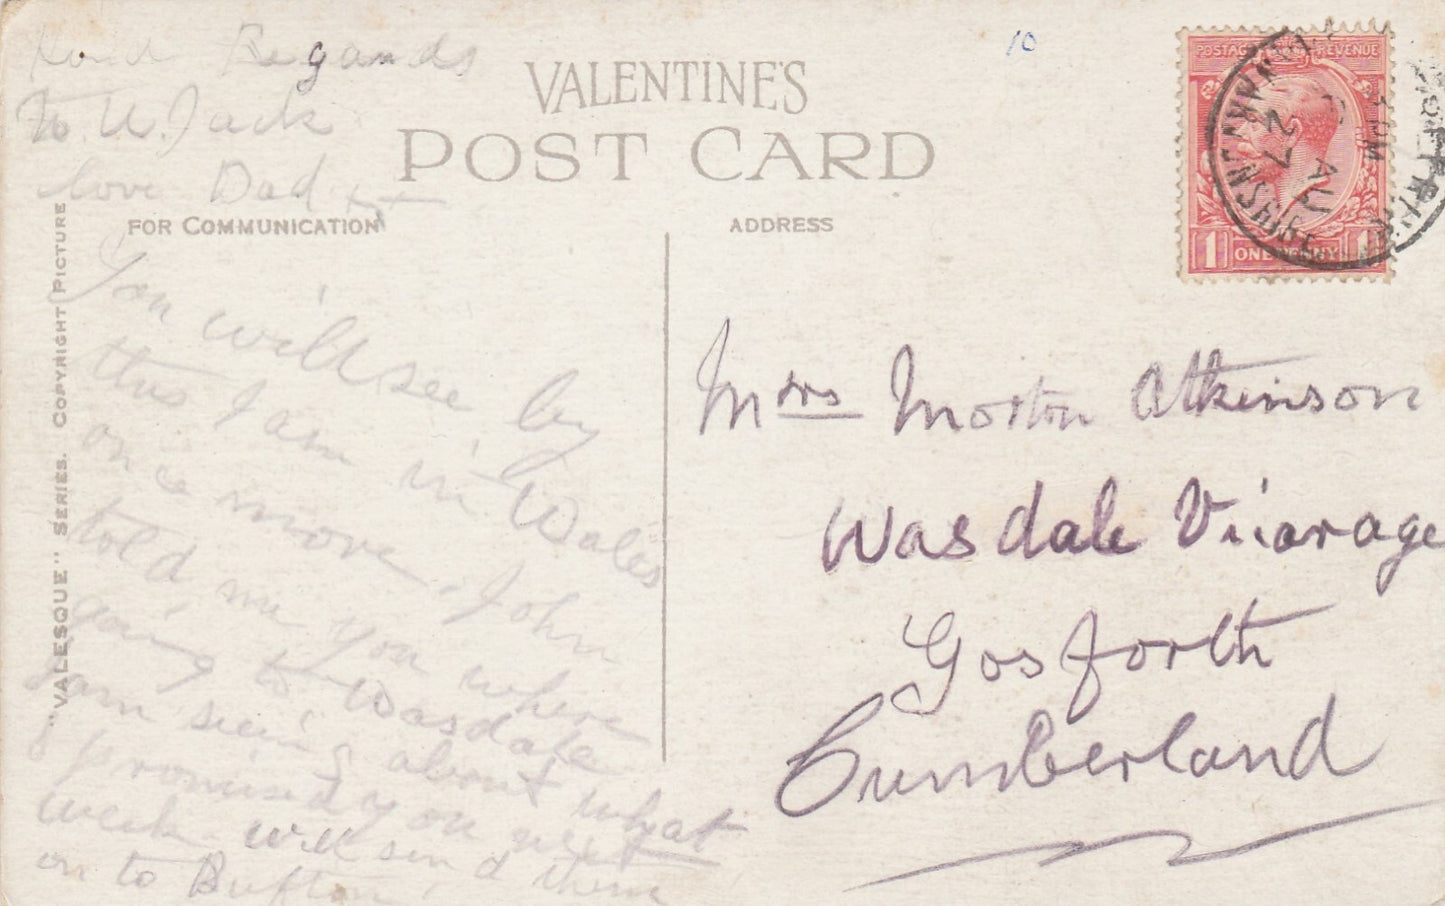 Kind Regards
to W. Jack
love Dad xx
VALENTINE'S
POST CARD
FOR COMMUNICATION
ADDRESS
10
POSTAGE REVENUE
1 ONE PENNY 1
CARNARVONSHIRE
PM
AU
27
"VALESQUE" SERIES. COPYRIGHT PICTURE
You will see by
this I am in Wales
once more. John
told me you where
going to Wasdale
am seeing about what
I promised you next
week will send them
on to
Mrs Morton Atkinson
Wasdale Vicarage
Gosforth
Cumberland